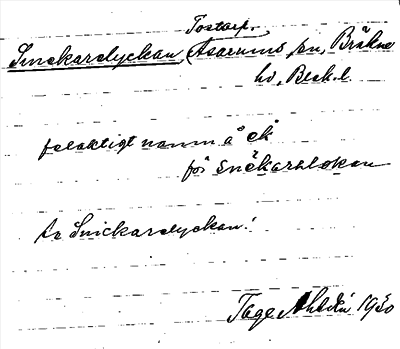 Tostarp.
Snickarelyckan, Asarums sn, Bräkne
hd, Blek. l.
felaktigt namn å ek
för Snèkarelokan
Är Snickarelyckan!
Tage 1930